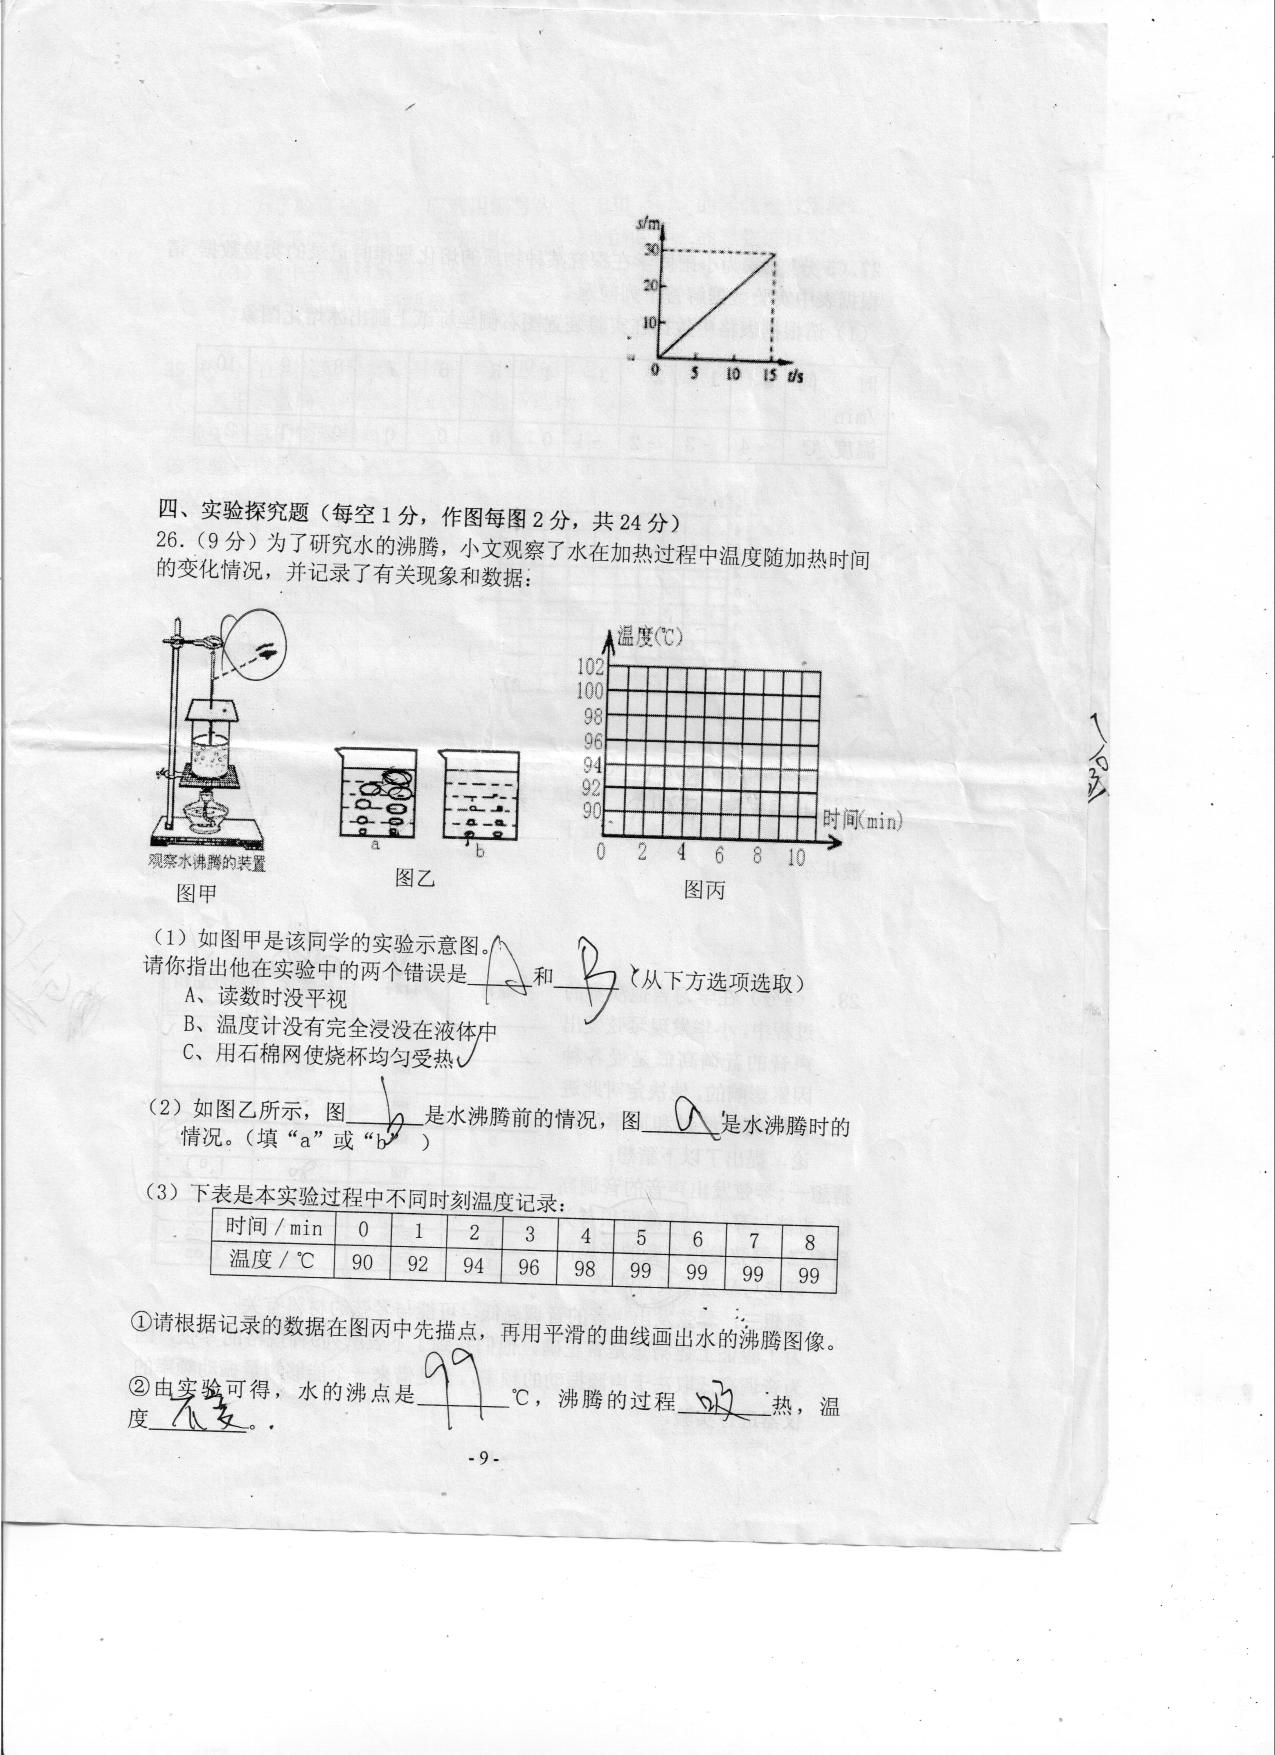 s/m
30
20
10
0 5 10 15 t/s
四、实验探究题（每空1分，作图每图2分，共24分）
26.（9分）为了研究水的沸腾，小文观察了水在加热过程中温度随加热时间
的变化情况，并记录了有关现象和数据：
温度(℃)
102
100
98
96
94
92
90
0 2 4 6 8 10
时间(min)
观察水沸腾的装置
图甲
a b
图乙
图丙
（1）如图甲是该同学的实验示意图。
请你指出他在实验中的两个错误是 A 和 B （从下方选项选取）
A、读数时没平视
B、温度计没有完全浸没在液体中
C、用石棉网使烧杯均匀受热
（2）如图乙所示，图 b 是水沸腾前的情况，图 a 是水沸腾时的
情况。（填“a”或“b”）
（3）下表是本实验过程中不同时刻温度记录：
时间/min 0 1 2 3 4 5 6 7 8
温度/℃ 90 92 94 96 98 99 99 99 99
①请根据记录的数据在图丙中先描点，再用平滑的曲线画出水的沸腾图像。
②由实验可得，水的沸点是 99 ℃，沸腾的过程 吸 热，温
度 不变 。
- 9 -